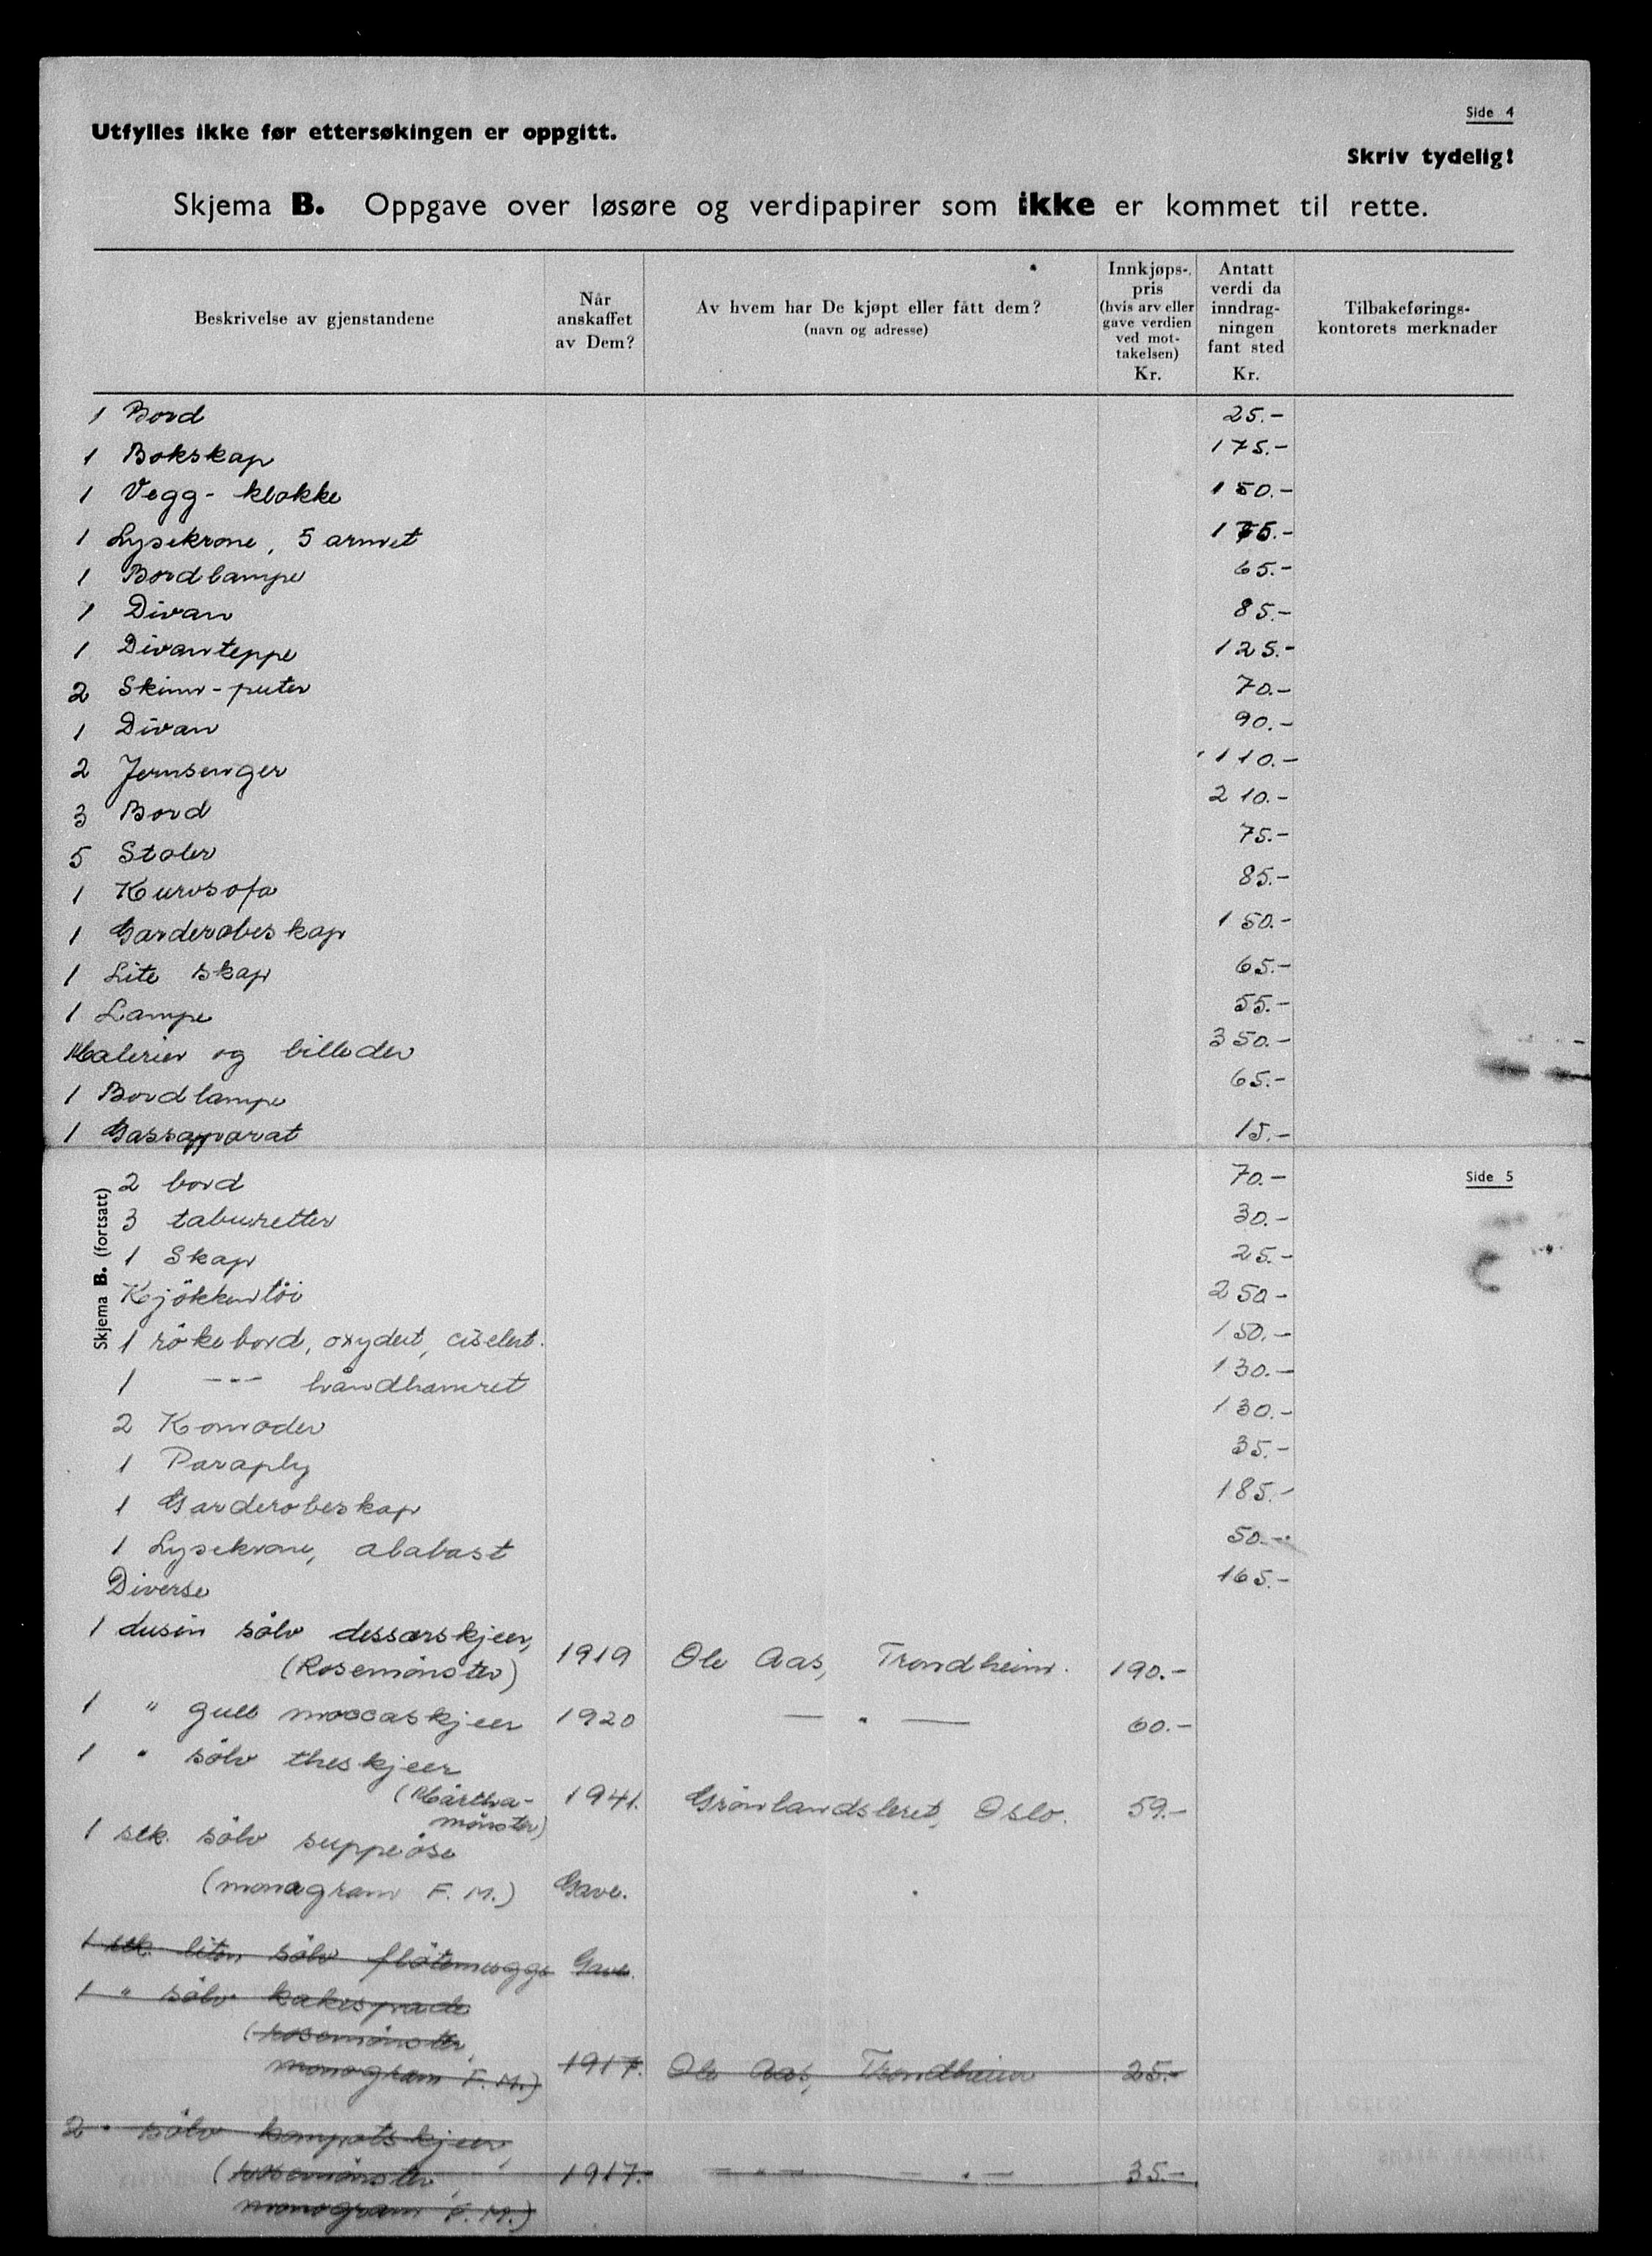 Side 4
Utfylles ikke før ettersøkingen er oppgitt.
Skriv tydelig!
Skjema B. Oppgave over løsøre og verdipapirer som ikke er kommet til rette.
Beskrivelse av gjenstandene
Når
anskaffet
av Dem?
Av hvem har De kjøpt eller fått dem?
(navn og adresse)
Innkjøps-
pris
(hvis arv eller
gave verdien
ved mot-
takelsen)
Kr.
Antatt
verdi da
inndrag-
ningen
fant sted
Kr.
Tilbakeførings-
kontorets merknader
1 Bord 25.-
1 Bokskap 175.-
1 Vegg-klokke 150.-
1 Lysekrone, 5 armet 175.-
1 Bordlampe 65.-
1 Divan 85.-
1 Divanteppe 125.-
2 Skinn-puter 70.-
1 Divan 90.-
2 Jernsenger 110.-
3 Bord 210.-
5 Stoler 75.-
1 Kurvsofa 85.-
1 Garderobeskap 150.-
1 Lite skap 65.-
1 Lampe 55.-
Malerier og billeder 350.-
1 Bordlampe 65.-
1 Gassapparat 15.-
Side 5
Skjema B. (fortsatt)
2 bord 70.-
3 taburetter 30.-
1 Skap 25.-
Kjökkentöi 250-
1 rökebord, oxydert, ciselert. 150.-
1 --- håndhamret 130.-
2 Komoder 130.-
1 Paraply 35.-
1 Garderobeskap 185.-
1 Lysekrone, alabast 50.-
Diverse 165.-
1 dusin sölv dessærskjeer,
(Rosemönster) 1919 Ole Aas, Trondheim. 190.-
1 " gull moccaskjeer 1920 — " — 60.-
1 " sölv theskjeer
(Märtha-
mönster) 1941. Grönlandsleret, Oslo. 59.-
1 stk. sölv suppeöse
(monogram F. M.) Gave.
1 stk. liten sölv flötemugge Gave.
1 " sölv kakespade
(rosemönster,
monogram F. M.) 1917. Ole Aas, Trondheim 25.-
2 " sölv kompotskjeer,
(rosemönster, 1917. — " — — " — 35.-
monogram F. M.)